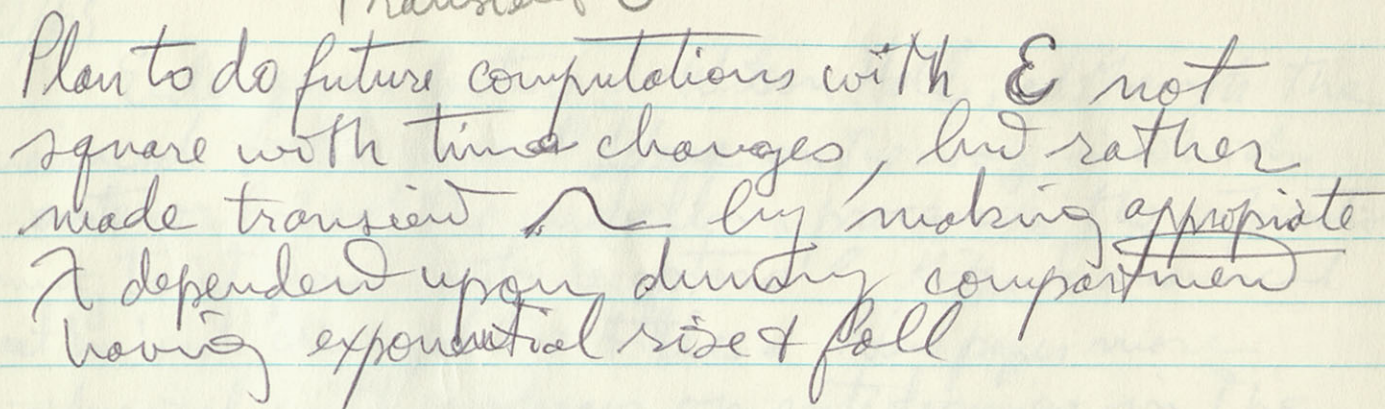 Transient
Plan to do future computations with ℰ not
square with time changes, but rather
made transient by making appropiate
λ dependent upon dummy compartment
having exponential rise & fall